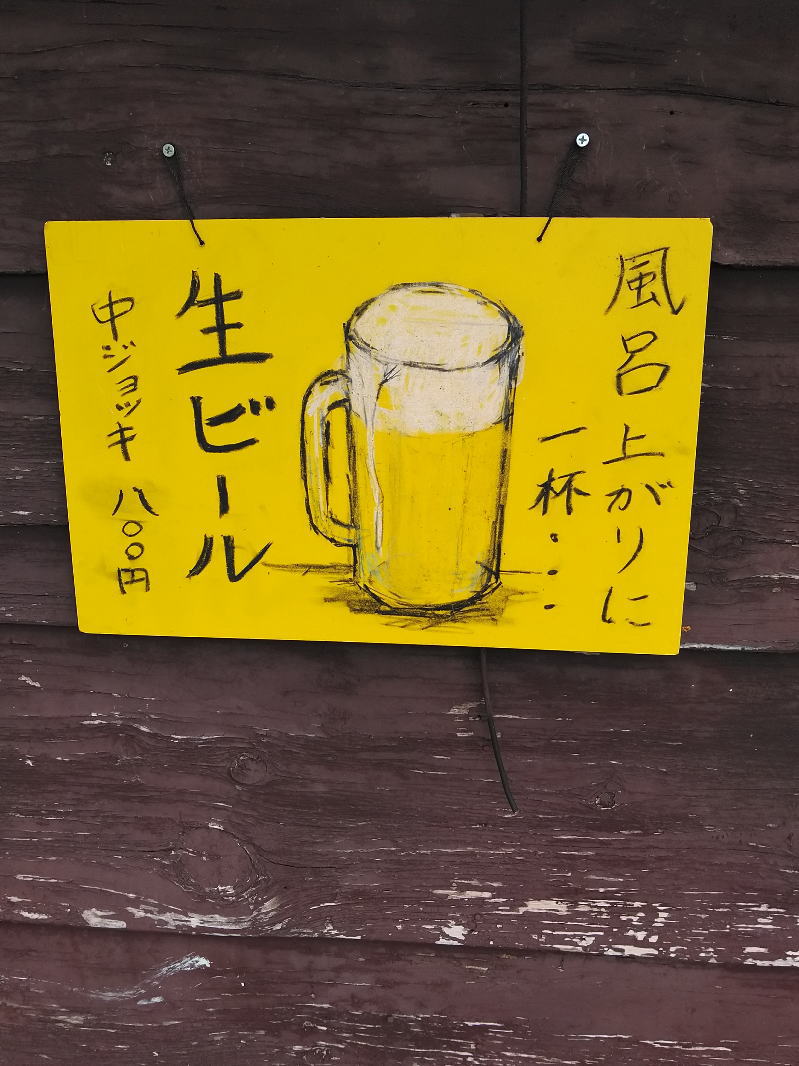 風呂上がりに
一杯・・・
生ビール
中ジョッキ 八〇〇円